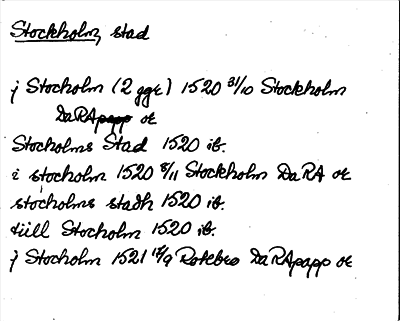 Stockholm, stad
j Stocholm (2 ggr) 1520 31/10 Stockholm
DaRA or
Stocholms Stad 1520 ib.
i stocholm 1520 8/11 Stockholm DaRA or
stocholms stadh 1520 ib.
tiill Stocholm 1520 ib.
j Stocholm 1521 17/9 Rotebro DaRApapp or